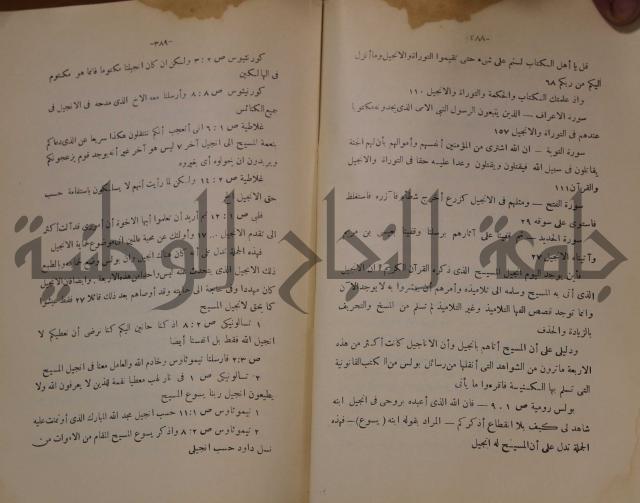 ٢٨٨
قل يا أهل الكتاب لستم على شيء حتى تقيموا التوراة والانجيل وما أنزل
اليكم من ربكم ٦٨
واذ علمتك الكتاب والحكمة والتوراة والانجيل ١١٠
سورة الاعراف — الذين يتبعون الرسول النبي الامي الذي يجدونه مكتوبا
عندهم في التوراة والانجيل ١٥٧
سورة التوبة — ان الله اشترى من المؤمنين أنفسهم وأموالهم بأن لهم الجنة
يقاتلون في سبيل الله فيقتلون ويقتلون وعدا عليه حقا في التوراة والانجيل
والقرآن ١١١
سورة الفتح — ومثلهم في الانجيل كزرع أخرج شطأه فآزره فاستغلظ
فاستوى على سوقه ٢٩
سورة الحديد — قفينا على آثارهم برسلنا وقفينا بعيسى بن مريم
وآتيناه الانجيل ٢٧
فأين يوجد اليوم انجيل المسيح الذي ذكره القرآن الكريم ؟ ان الانجيل
الذي أتى به المسيح وسلمه الى تلاميذه وأمرهم أن يبشروا به لا يوجد الآن
وانما توجد قصص ألفها التلاميذ وغير التلاميذ لم تسلم من المسخ والتحريف
بالزيادة والحذف
ودليلي على أن المسيح أتاهم بانجيل وأن الاناجيل كانت أكثر من هذه
الاربعة ماترون من الشواهد التي أنقلها من رسائل بولس من الكتب القانونية
التي تسلم بها الكنيسة فاقرءوا ما يأتي
بولس رومية ص ١ . ٩ — فان الله الذي أعبده بروحي في انجيل ابنه
شاهد لي كيف بلا انقطاع أذكركم — المراد بقوله ابنه (يسوع) — فهذه
الجملة تدل على أن المسيح له انجيل
-٣٨٩-
كورنثيوس ص ٢ : ٣ ولكن ان كان انجيلنا مكتوما فانما هو مكتوم
في الهالكين
كورنثيوس ص ٨ : ٨ وأرسلنا معه الاخ الذي مدحه في الانجيل في
جميع الكنائس
غلاطية ص ١ : ٦ اني أتعجب أنكم تنتقلون هكذا سريعا عن الذي دعاكم
بنعمة المسيح الى انجيل آخر ٧ ليس هو آخر غير أنه يوجد قوم يزعجونكم
ويريدون ان يحولوا أي يغيروه
غلاطية ص ٢ : ١٤ ولكن لما رأيت أنهم لا يسلكون باستقامة حسب
حق الانجيل الخ
فلبي ص ١ : ١٢ ثم أريد أن تعلموا أيها الاخوة أن أموري قد آلت أكثر
الى تقدم الانجيل ... ١٧ وأولئك عن محبة عالمين اني موضوع لحماية الانجيل
فهذه الجملة تدل على أنه كان هناك انجيل وان بولس وضع لحمايته وبالطبع
ذلك الانجيل الذي يتحدث عنه ليس واحدا من هذه الاربعة . وايضا فان الانجيل
كان مهددا وفي حاجة الى حمايته وقد أوصاهم بعد ذلك قائلا ٢٧ فقط عيشوا
كما يحق لانجيل المسيح
١ تسالونيكي ص ٢ : ٨ اذ كنا حانين اليكم كنا نرضى أن نعطيكم لا
انجيل الله فقط بل أنفسنا أيضا
ص ٣ : ٢ فارسلنا تيموثاوس وخادم الله والعامل معنا في انجيل المسيح
٢ تسالونيكي ص ١ في نار لهب معطيا نقمة للذين لا يعرفون الله ولا
يطيعون انجيل ربنا يسوع المسيح
١ تيموثاوس ص ١ : ١١ حسب انجيل مجد الله المبارك الذي أوتمنت عليه
٢ تيموثاوس ص ٢ : ٨ واذكر يسوع المسيح المقام من الاموات من
نسل داود حسب انجيلي
جامعة النجاح الوطنية